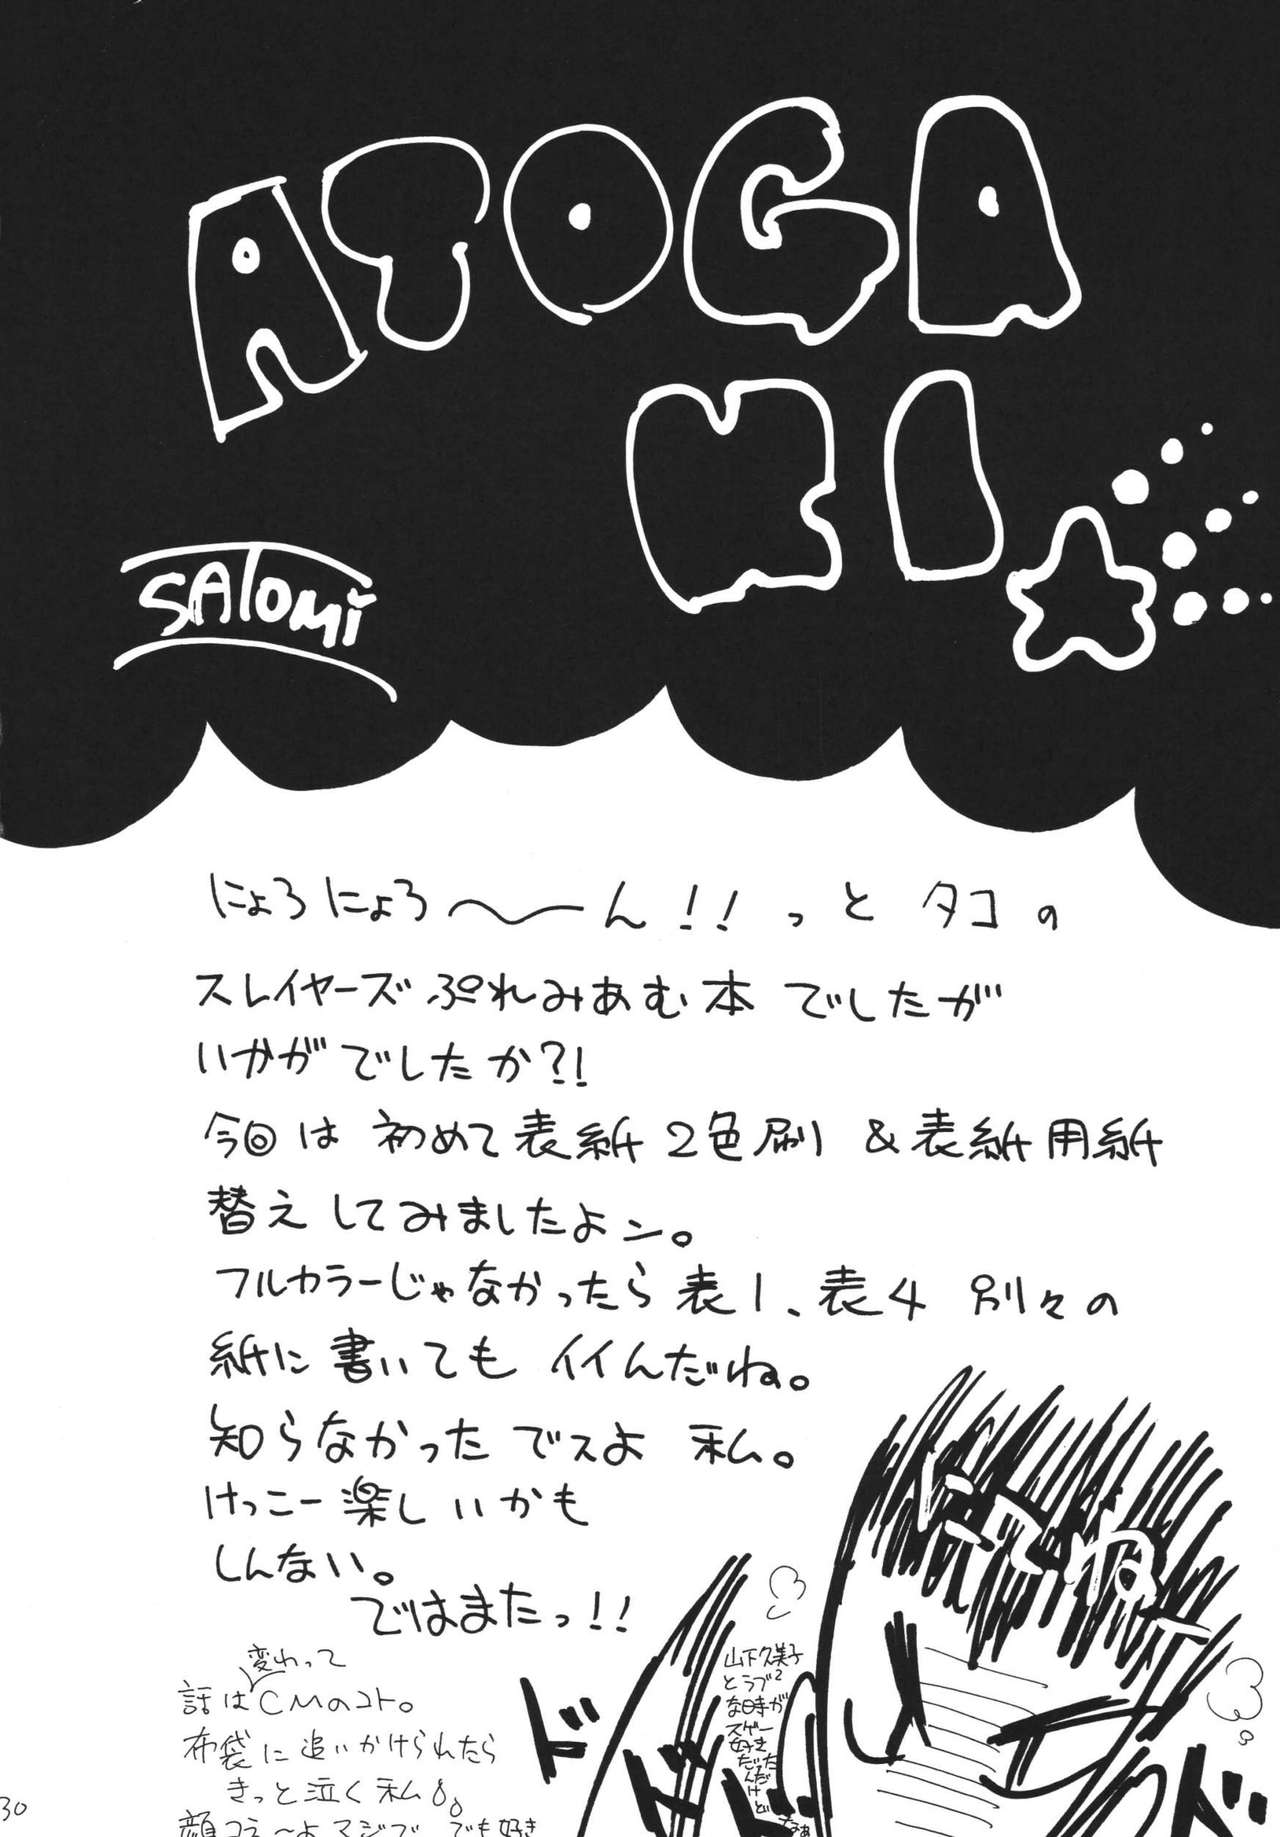 ATOGA
KI
SATOMi
にょろにょろ〜ん!!っと タコの
スレイヤーズ ぷれみあむ本 でしたが
いかがでしたか?!
今回は 初めて表紙2色刷 &表紙用紙
替えしてみましたよン。
フルカラーじゃなかったら表1、表4 別々の
紙に書いても イイんだね。
知らなかった でスよ 私。
けっこー楽しいかも
しんない。
ではまたっ!!
話は変わってCMのコト。
布袋に追いかけられたら
きっと泣く私。
顔コえ〜よマジで でも好き
山下久美子
とラブ2
な時が
スゲー
好き
だったんだけど
なぁ
にてねー
ドドド
ド
30